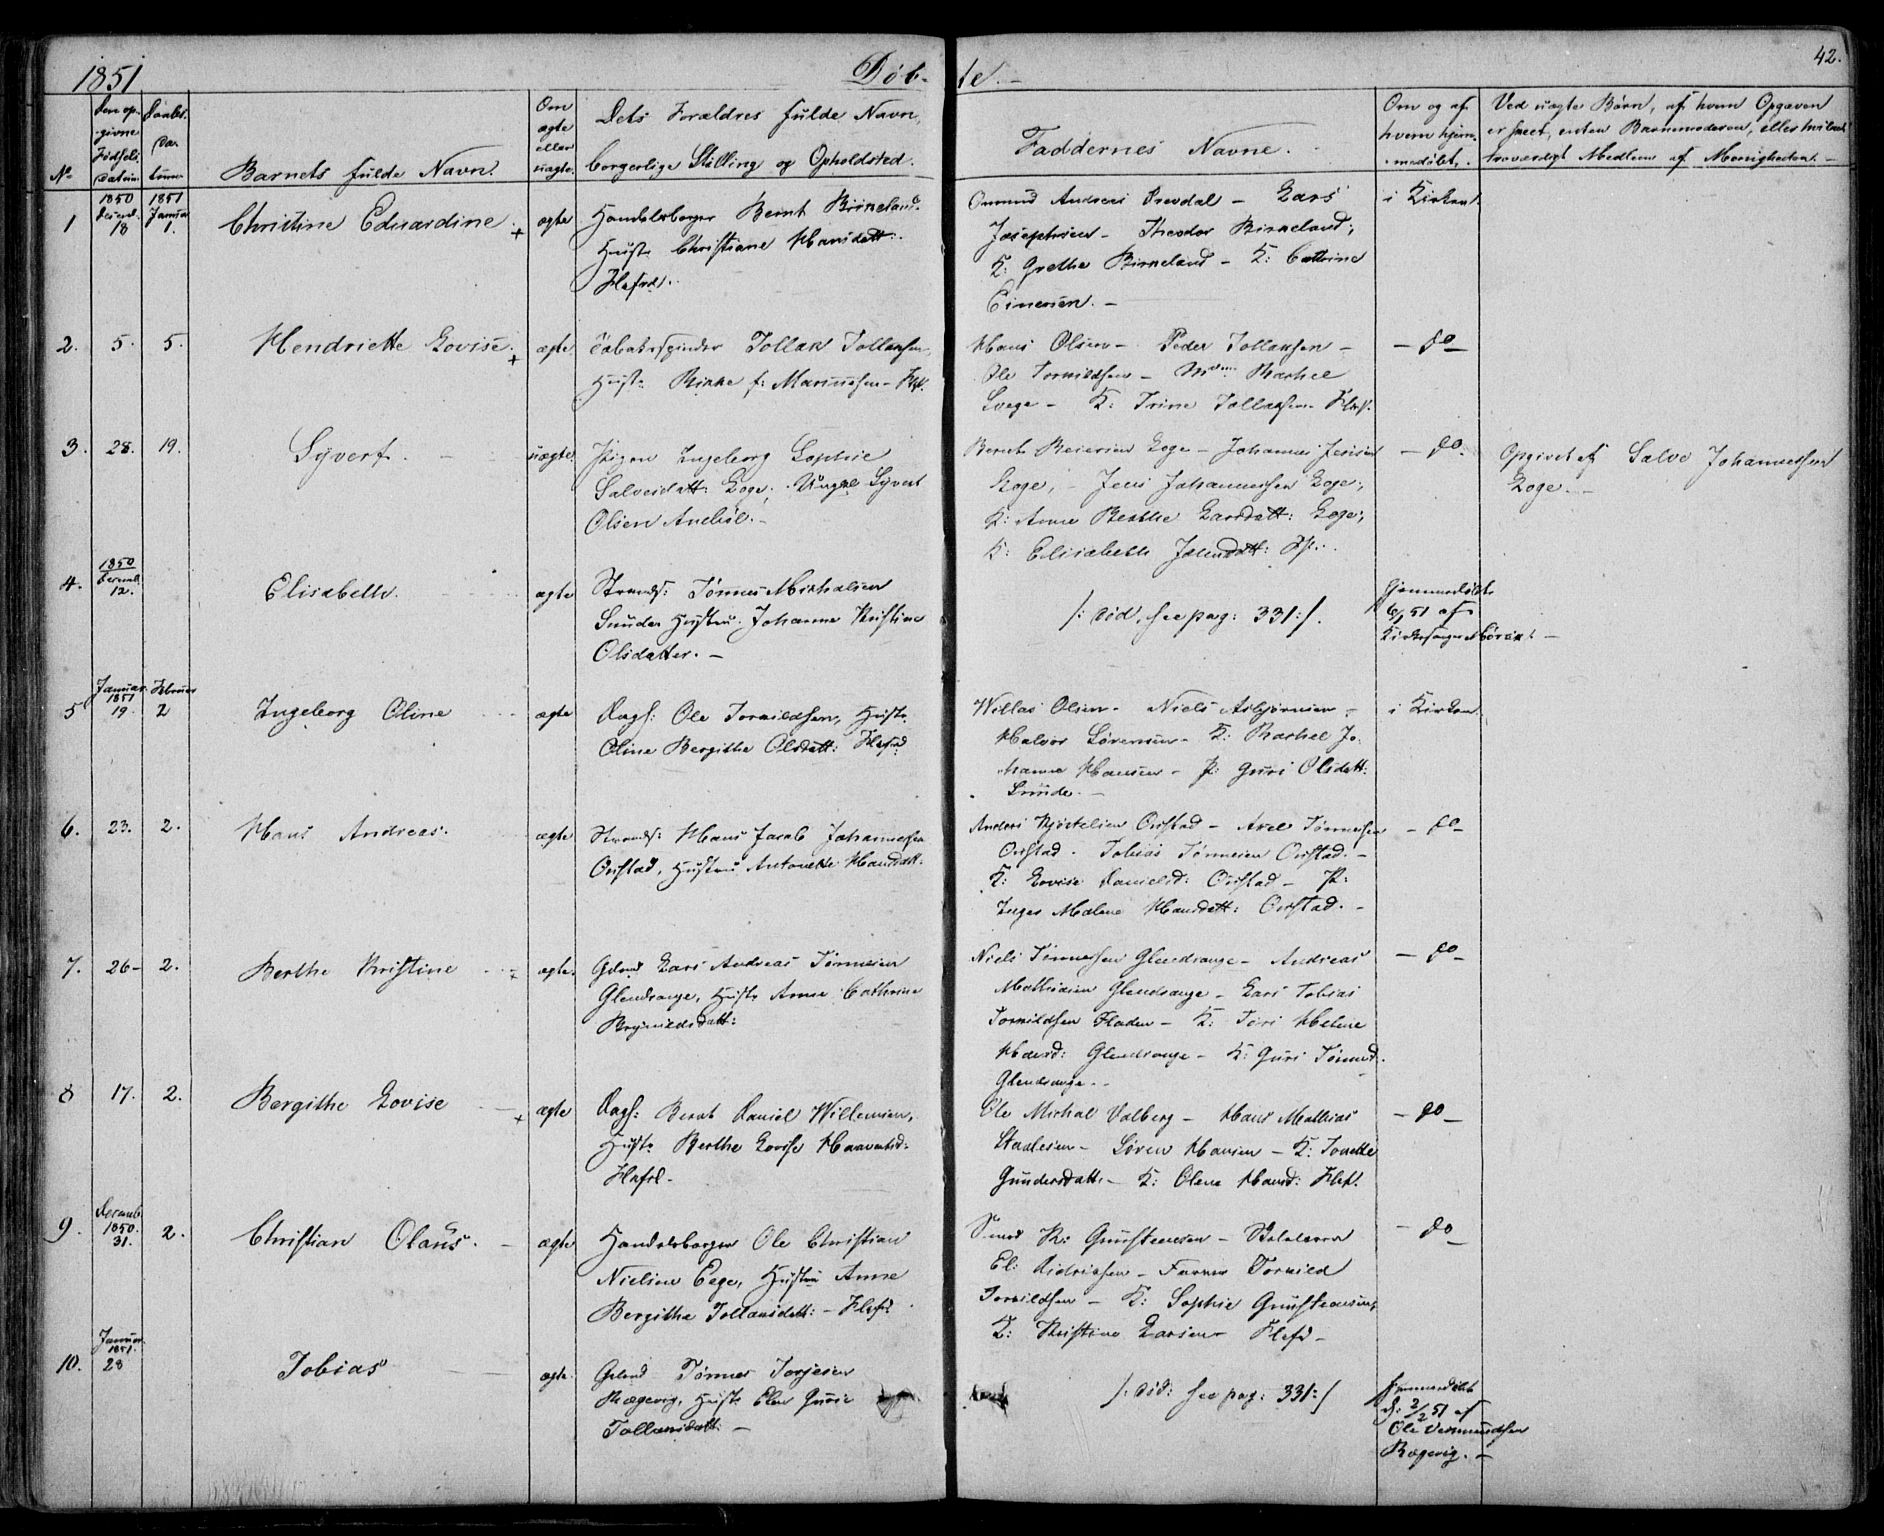 1851
Døb-
te.-
42.
No
Den op-
givne
Fødsels
Datum
Daabs
Da-
tum
Barnets fulde Navn.
Om
ægte
eller
uægte.
Dets Forældres fulde Navn,
borgerlige Stilling og Opholdsted.
Faddernes Navne.
Om og af
hvem hjem-
medøbt.
Ved uægte Børn, af hvem Opgaven
er skeet, enten Barnemoderen, eller
troværdigt Medlem af Menigheden.-
1
1850
Decemb.
18
1851
Januar
1.
Christine Eduardine.
+
ægte
Handelsborger Bernt Birkeland
Hustr Christiane Hansdatt:
Flefrd.
Omund Andreas - Lars
Josephsen - Theodor Birkeland;
K: Grethe Birkeland - K: Cathrine
Einersen.-
i Kirken
2.
5.
5.
Hendriette Lovise.
+
ægte
Tobaksspinder Tollak Tollaksen,
Hustr Birke f: - Flef.
Hans Olsen - Peder Tollaksen -
Ole Torkildsen - Mdm Rachel
Svege - K: Trine Tollaksen Flef.
- do -
3.
28.
19.
Syvert.
uægte
Pigen Ingeborg Sophie
Salvesdatt: Loge; Ungkl Syvert
Olsen
Bernt Reiersen Loge - Johannes
Loge, - Jens Johannessen Loge;
K: Anne Berthe Larsdatt: Loge;
K: Elisabeth
- do.
Opgivet af Salve Johannessen
Loge.-
4.
1850
Decemb.
12.
Elisabeth.
ægte
Strands: Tønnes Mikkalsen
Sundes Hustru Johanne Kristine
Olsdatter.-
/: død, see pag: 331:/.
Hjemmedøbt
6/1 51 af
Kirkesanger
5
Januar
1851
19.
Februar
2
Ingeborg Oline
ægte
Dags: Ole Torkildsen, Hustr
Oline Bergithe Olsdatt: Flefrd
Willas Olsen - Niels Asbjørnsen -
Halvor Sørensen - K: Rachel Jo-
hanne Hansen - P: Guri Olsdatt:
Lunde.-
i Kirken
6.
23.
2.
Hans Andreas.
ægte
Strands: Hans Jacob Johannessen
Oustad, Hustru Antonette Hansdatt:
Anders Oustad - Axel Tønnessen
Oustad. Tobias Tønnesen Oustad.-
K: Lovise Danielsd: Oustad - P:
Inger Malene Hansdatt: Oustad.-
- do -
7.
26-
2.
Berthe Kristine
+
ægte.
Gdmd Lars Andreas Tønnesen
Glendrange, Hustr Anne Cathrine
Reynildsdatt:
Niels Tønnessen Glendrange - Andreas
Mathiasen Glendrange - Lars Tobias
Torkildsen Fladen - K: Tori Helene
Glendrange - K: Guri Tønnesd.
Glendrange.-
- do -
8
17.
2.
Bergithe Lovise
+
ægte
Dags: Bernt Daniel Willumsen,
Hustr Berthe Lovise
Flefrd.-
Ole Michal Valberg - Hans Mathias
Staalesen - Søren Hansen - K: Tonette
Gundersdatt. - K: Olene Hansd: Flef.
- do -
9.
Decemb.
1850.
31.
2.
Christian Olaus.
ægte
Handelsborger Ole Christian
Nielsen Eege, Hustru Anne
Bergithe Tollaksdatt: - Flefd.
R: Gundersen -
El: Didriksen - Farver Torkild
Torkildsen - K: Sophie
K: Kristine Larsen Flefd -
- do -
10.
Januar
1851.
28
Tobias
ægte.
Gdmd Tønnes Torjesen
Rægevig, Hustr Elen Gurie
Tollaksdatt: -
/: død: see pag: 331:/
Hjemmedøbt
d: 2/2 51 af
Ole Vermundsen
Rægevig.-